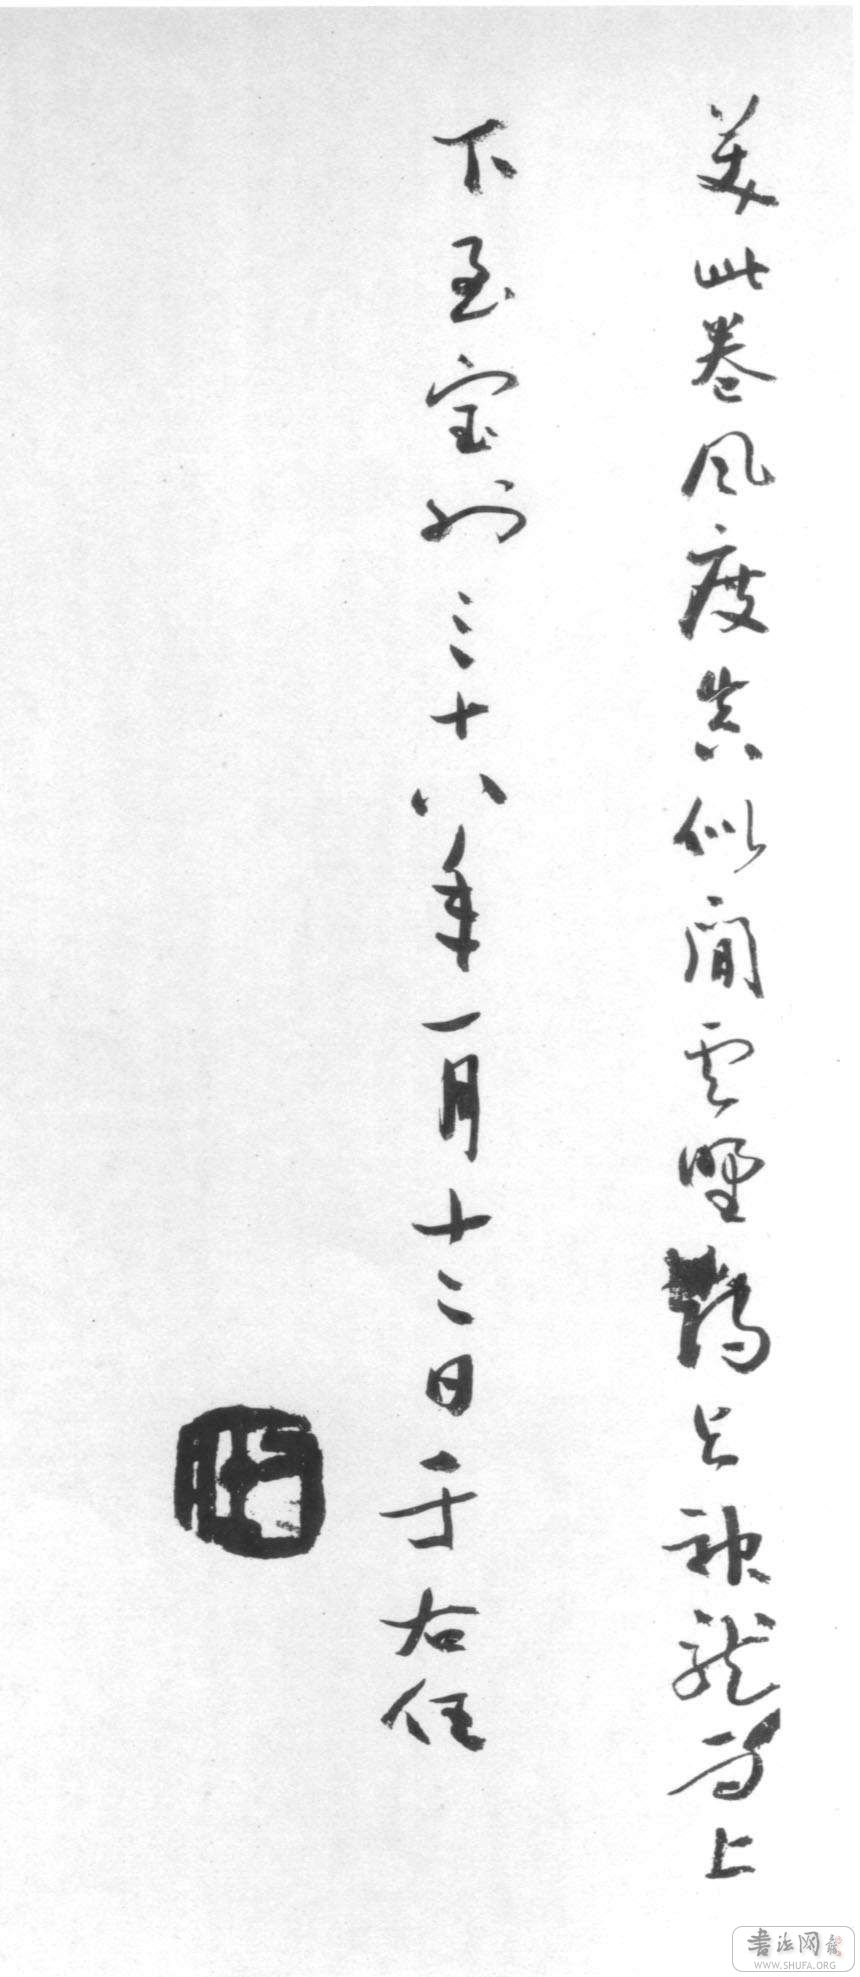 美此卷風度真似閒雲野鶴神龍为上
下至宝三十八年一月十二日于右任
書法网
WWW.SHUFA.ORG